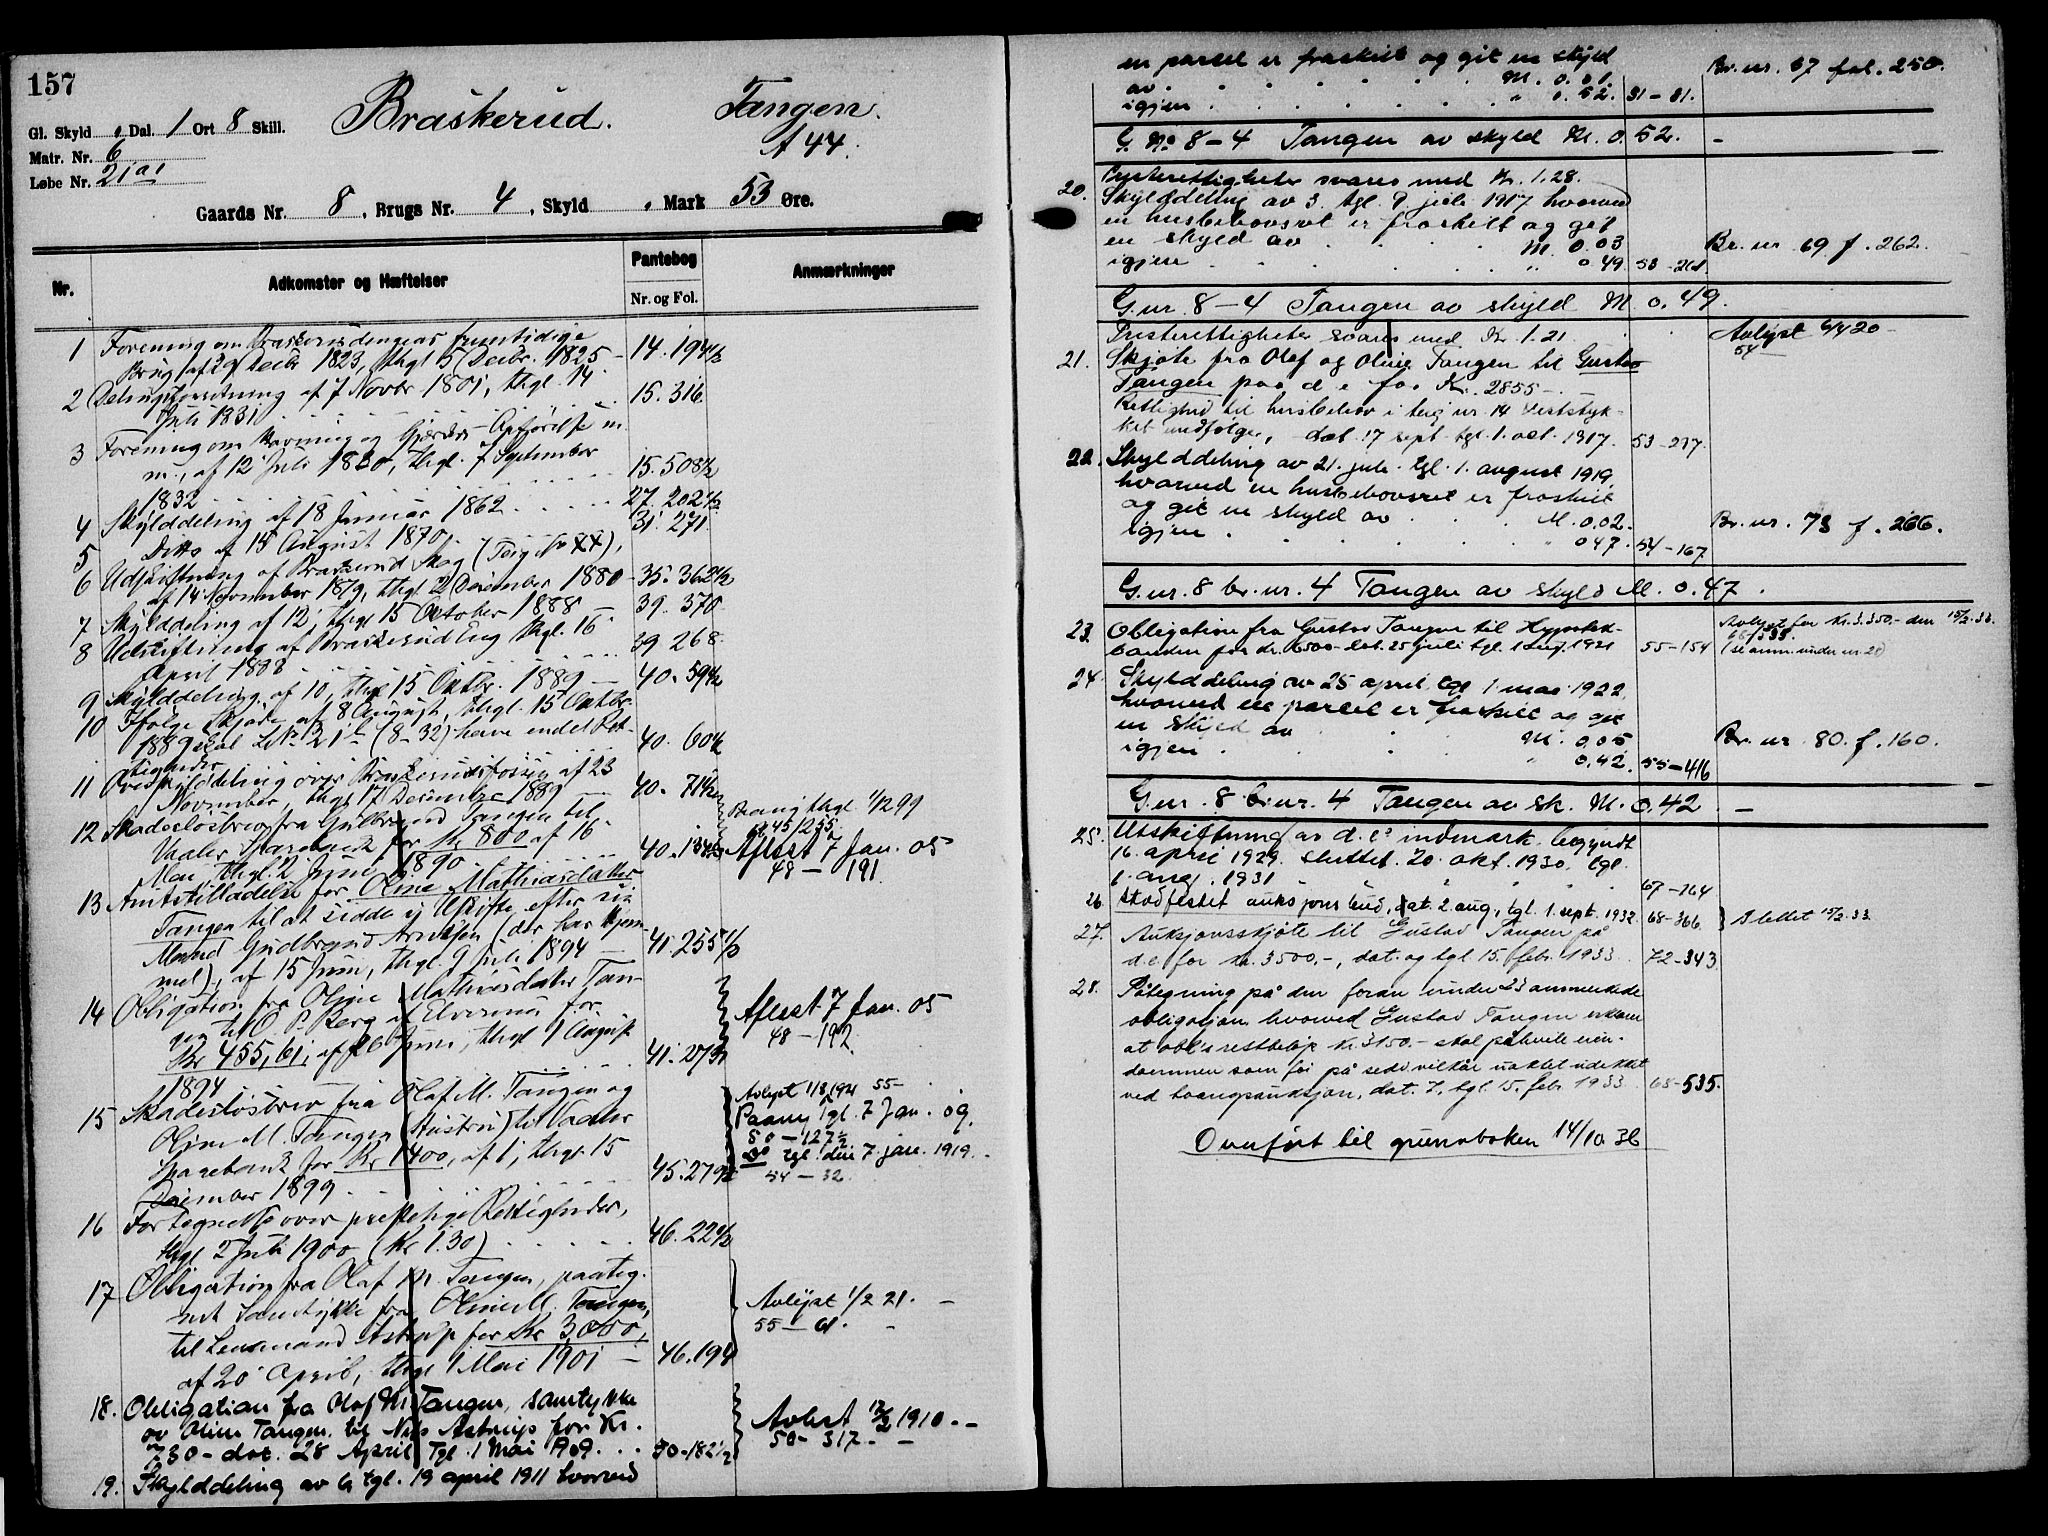 157
Gl. Skyld „ Dal. 1 Ort 8 Skill.
Braskerud.
Tangen.
A 44.
Matr. Nr. 6
Løbe Nr. 21a1
Gaards Nr. 8, Brugs Nr. 4, Skyld „ Mark 53 Øre.
Nr.
Adkomster og Hæftelser
Pantebog
Nr. og Fol.
Anmærkninger
1 Forening om Braskerudengens fremtidige
Brug af 29 Decbr 1823, thgl 5 Decbr. 1825 – 14. 194½
2 Delingsforretning af 7 Novbr 1801, thgl. 14
Juli 1831 15. 316
3 Forening om Havning og Gjærders Opførelse m.
m., af 12 Juli 1830, thgl. 7 September
1832 15. 508½
4 Skylddeling af 18 Januar 1862 27. 202½
5 Ditto af 15 August 1870 31. 271
6 Udskiftning af Braskerud Skog (Teig No XX),
af 14 November 1879, thgl 2 December 1880 – 35. 362½
7 Skylddeling af 12, thgl 15 Oktober 1888 – 39. 370
8 Udskiftning af Braskerud Eng thgl. 16
April 1888 39 268
9 Skylddeling af 10, thgl 15 Oktbr. 1889 – 40. 59½
10 Ifølge Skjøde af 8 August, thgl. 15 Oktbr.
1889 skal L.No 21 (8–32) have endel Ret-
tigheder 40. 60½
11 Overskylddeling over Braskerudfossen af 23
November, thgl 17 December 1889 – 40. 71½
12 Skadesløsbrev fra Gulbrand Tangen til
Vaaler Sparebank for Kr 800 af 16
Mai, thgl. 2 Juni 1890 40. 134½
Paateg thgl 1/2 99
45/255
Aflæst 7 Jan. 05
48 – 191.
13 Amtstilladelse for Oline Mathiasdatter
Tangen til at sidde i Uskifte efter sin
Mand Gudbrand Arnesen (der har Skjøn-
mel), af 15 Juni, thgl. 9 Juli 1894 – 41. 255½
14 Obligation fra Oline Mathisdatter Tan-
gen til O. P. Berg af Elverum for
Kr 455,61, af 26 Juni, thgl 1 August
1894 41. 273½
Aflæst 7 Jan. 05
48 – 192.
15 Skadesløsbrev fra Olaf M. Tangen og
Oline M. Tangen (Hustru) til Vaaler
Sparebank for Kr 1400, af 1, thgl. 15
December 1899 45. 279½
Avlyst 1/8 1921 55–
Paateg tgl. 7 Jan. 09.
50 – 127½
Do tgl. den 7 jan. 1919.
54 – 32.
16 Fortegnelse over præstelige Rettigheder,
thgl 2 Juli 1900 (Kr 1.30) 46. 22½
17 Obligation fra Olaf M. Tangen, paateg-
net Samtykke fra Oline M. Tangen,
til Lensmand Astrup for Kr 3,000,
af 20 April, thgl 1 Mai 1901 – 46. 194
Avlyst 1/2 21. –
55 – 61. –
18. Obligation fra Olaf M. Tangen, samtykke
av Oline Tangen. til Nils Astrup for Kr.
730 – dat. 28 April Tgl. 1 Mai 1909. 50–182½
Avlæst 12/2 1910. –
50 – 317 –
19. Skylddeling av 6 tgl. 19 april 1911 hvorved
en parcel er fraskilt og git en skyld
av M. 0.01.
igjen „ 0.52. 31–81.
Br. nr. 67 fol. 250.
G. No 8–4 Tangen av skyld M. 0.52. –
Presterettigheter svares med Kr. 1.28.
20. Skylddeling av 3. tgl. 9. juli 1917 hvorved
en husbehovsret er fraskilt og git
en skyld av M. 0.03
igjen „ 0.49. 53–261
Br. nr. 69 f. 262.
G.nr. 8–4 Tangen av skyld M 0.49.
Presterettigheter svares med Kr 1.21
Avlyst 6/4 20 –
54
21. Skjøte fra Olaf og Oline Tangen til Gustav
Tangen paa d.e for Kr. 2855 –.
Rettighed til husbehov i teig nr. 14 Peststyk-
ket medfølger, dat. 17 sept. tgl. 1. oct. 1917. 53–297.
22. Skylddeling av 21. juli. tgl. 1. august 1919,
hvorved en husbehovsret er fraskilt
og git en skyld av M. 0.02.
igjen „ 0.47. 54–167
Br. nr. 73 f. 266.
G.nr. 8 br. nr. 4 Tangen av skyld M. 0.47.
23. Obligation fra Gustav Tangen til Hypotek-
banken for kr. 6500 – dat. 25 juli tgl. 1 aug. 1921 55–154
Avlyst for kr. 3.350,– den 15/2 33.
68/535.
(se anm. under nr. 28)
24 Skylddeling av 25 april tgl 1 mai 1922
hvorved en parcel er fraskilt og git
en skyld av M. 0.05
igjen „ 0.42. 55–416
Br. nr. 80. f. 160.
G.nr. 8 br. nr. 4 Tangen av sk. M. 0,42 –
25. Utskiftning av d.e's indmark. begyndt
16. april 1929. sluttet. 20. okt. 1930, tgl.
1. aug. 1931 67–164
26. Stadfestet auksjonsbud, dat. 2 aug., tgl. 1. sept. 1932 68–366.
Slettet 15/2 33.
27. Auksjonsskjøte til Gustav Tangen på
d.e for kr. 3500,–, dat. og tgl 15. febr. 1933 72–343
28. Påtegning på den foran under 23 anmerkede
obligasjon hvorved Gustav Tangen erklærer
at obl.s restbeløp kr. 3150.– skal påhvile eien-
dommen som før på sedv. vilkår uaktet udekket
ved tvangsauksjon, dat. 7, tgl. 15. febr. 1933. 68–535.
Overført til grunnboken 14/10 36